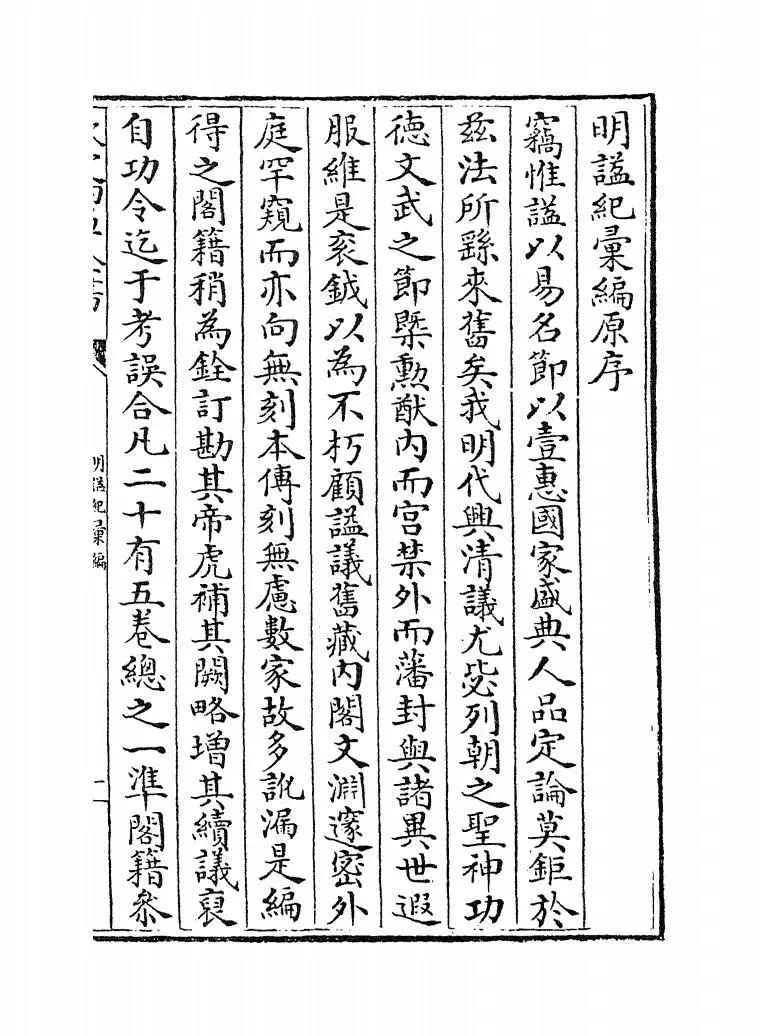 明諡紀彙編原序
竊惟諡以易名節以壹惠國家盛典人品定論莫鉅於
茲法所繇來舊矣我明代興清議尤毖列朝之聖神功
徳文武之節槩勲猷内而宫禁外而藩封與諸異世遐
服維是衮鉞以為不朽顧諡議舊藏内閣文淵邃密外
庭罕窺而亦向無刻本傳刻無慮數家故多訛漏是編
得之閣籍稍為銓訂勘其帝虎補其闕略増其續議裒
自功令迄于考誤合凡二十有五卷總之一準閣籍叅
明諡紀彙編